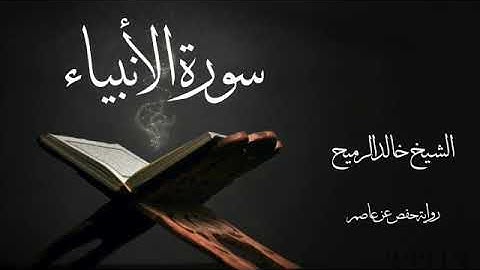 سورة الأنبياء
الشيخ خالد الرميح
رواية حفص عن عاصم